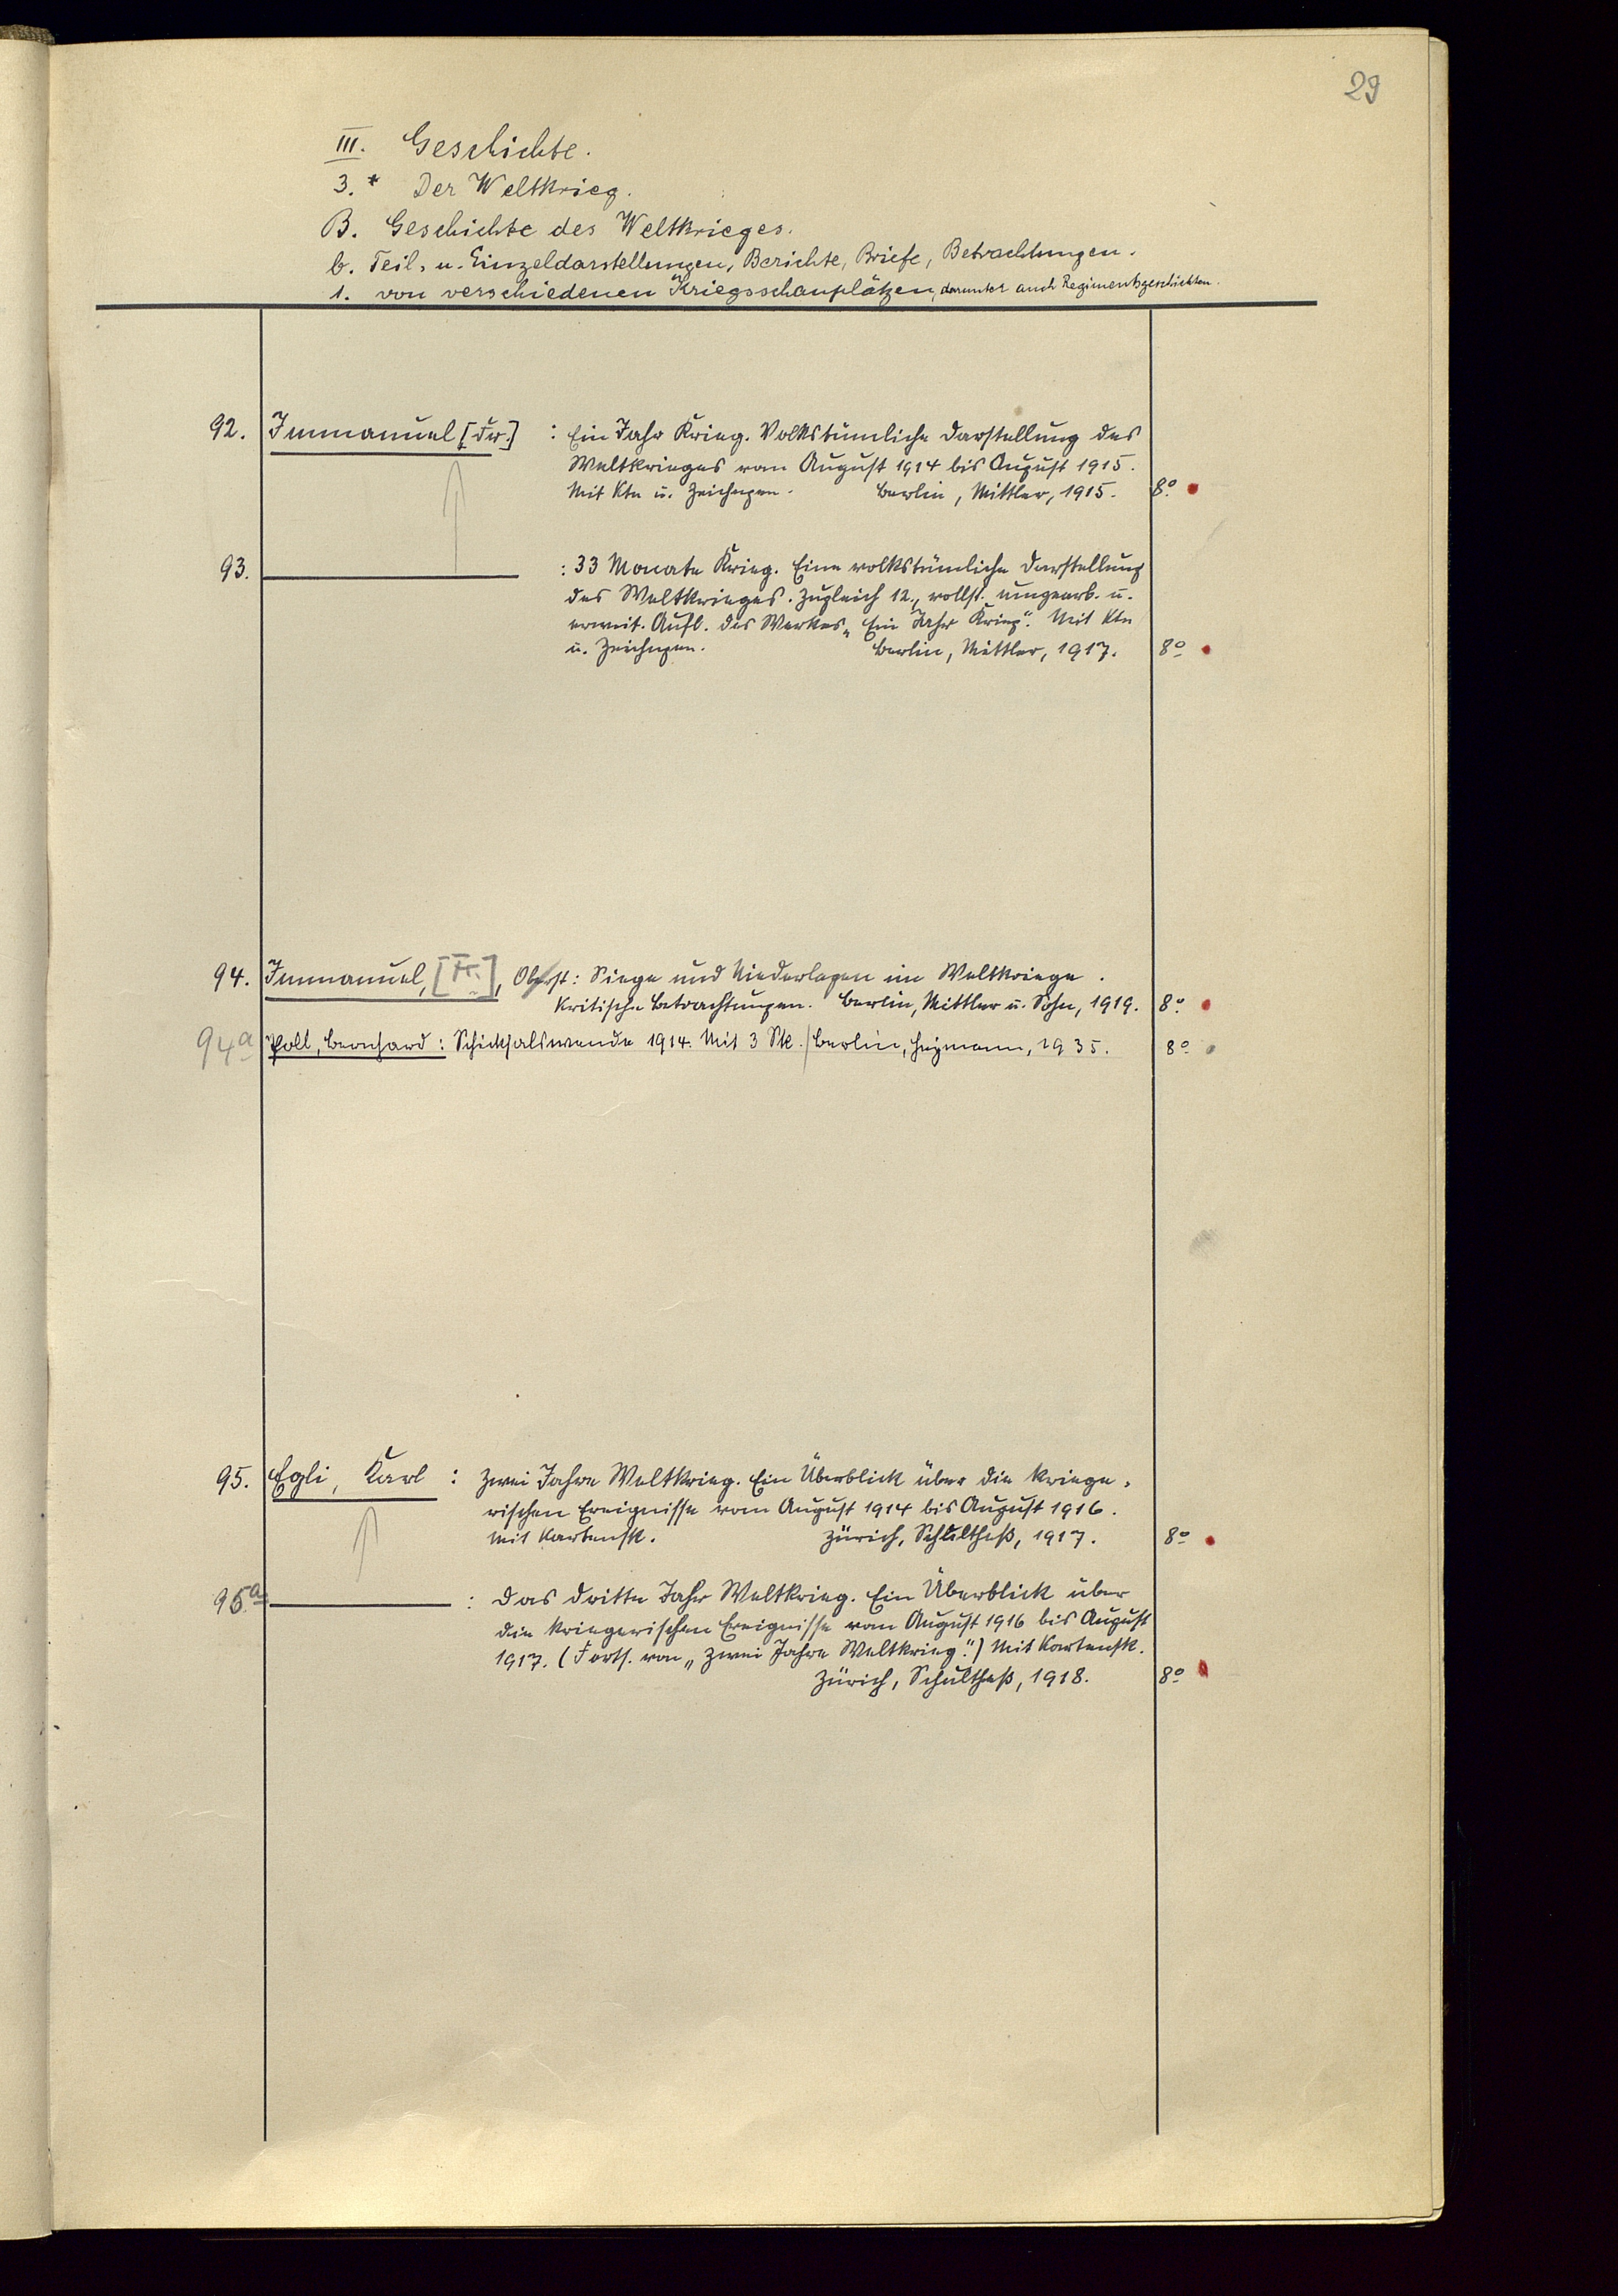 29
III. Geschichte.
3.* Der Weltkrieg.
B. Geschichte des Weltkrieges.
b. Teil- u. Einzeldarstellungen, Berichte, Briefe, Betrachtungen.
1. von verschiedenen Kriegsschauplätzen, darunter auch Regimentsgeschichten.
92. Immanuel [Fr.] : Ein Jahr Krieg. Volkstümliche Darstellung des
Weltkrieges vom August 1914 bis August 1915.
Mit Ktn u. Zeichngen. Berlin, Mittler, 1915. 8º
93. ——— : 33 Monate Krieg. Eine volkstümliche Darstellung
des Weltkrieges. Zugleich 12., vollst. umgearb. u.
erweit. Aufl. des Werkes „Ein Jahr Krieg". Mit Ktn
u. Zeichngen. Berlin, Mittler, 1917. 8º
94. Immanuel, [Fr.], Oberst: Siege und Niederlagen im Weltkriege.
Kritische Betrachtungen. Berlin, Mittler u. Sohn, 1919. 8º
94a Poll, Bernhard: Schicksalswende 1914. Mit 3 Sk. / Berlin, Heymann, 1935. 8º
95. Egli, Karl : Zwei Jahre Weltkrieg. Ein Überblick über die kriege-
rischen Ereignisse vom August 1914 bis August 1916.
Mit Kartensk. Zürich, Schultheß, 1917. 8º
95a ——— : Das dritte Jahr Weltkrieg. Ein Überblick über
die kriegerischen Ereignisse vom August 1916 bis August
1917. (Forts. von „Zwei Jahre Weltkrieg".) Mit Kartensk.
Zürich, Schultheß, 1918. 8º